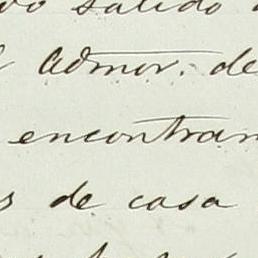 salido
Admor. de
encontran
s de casa